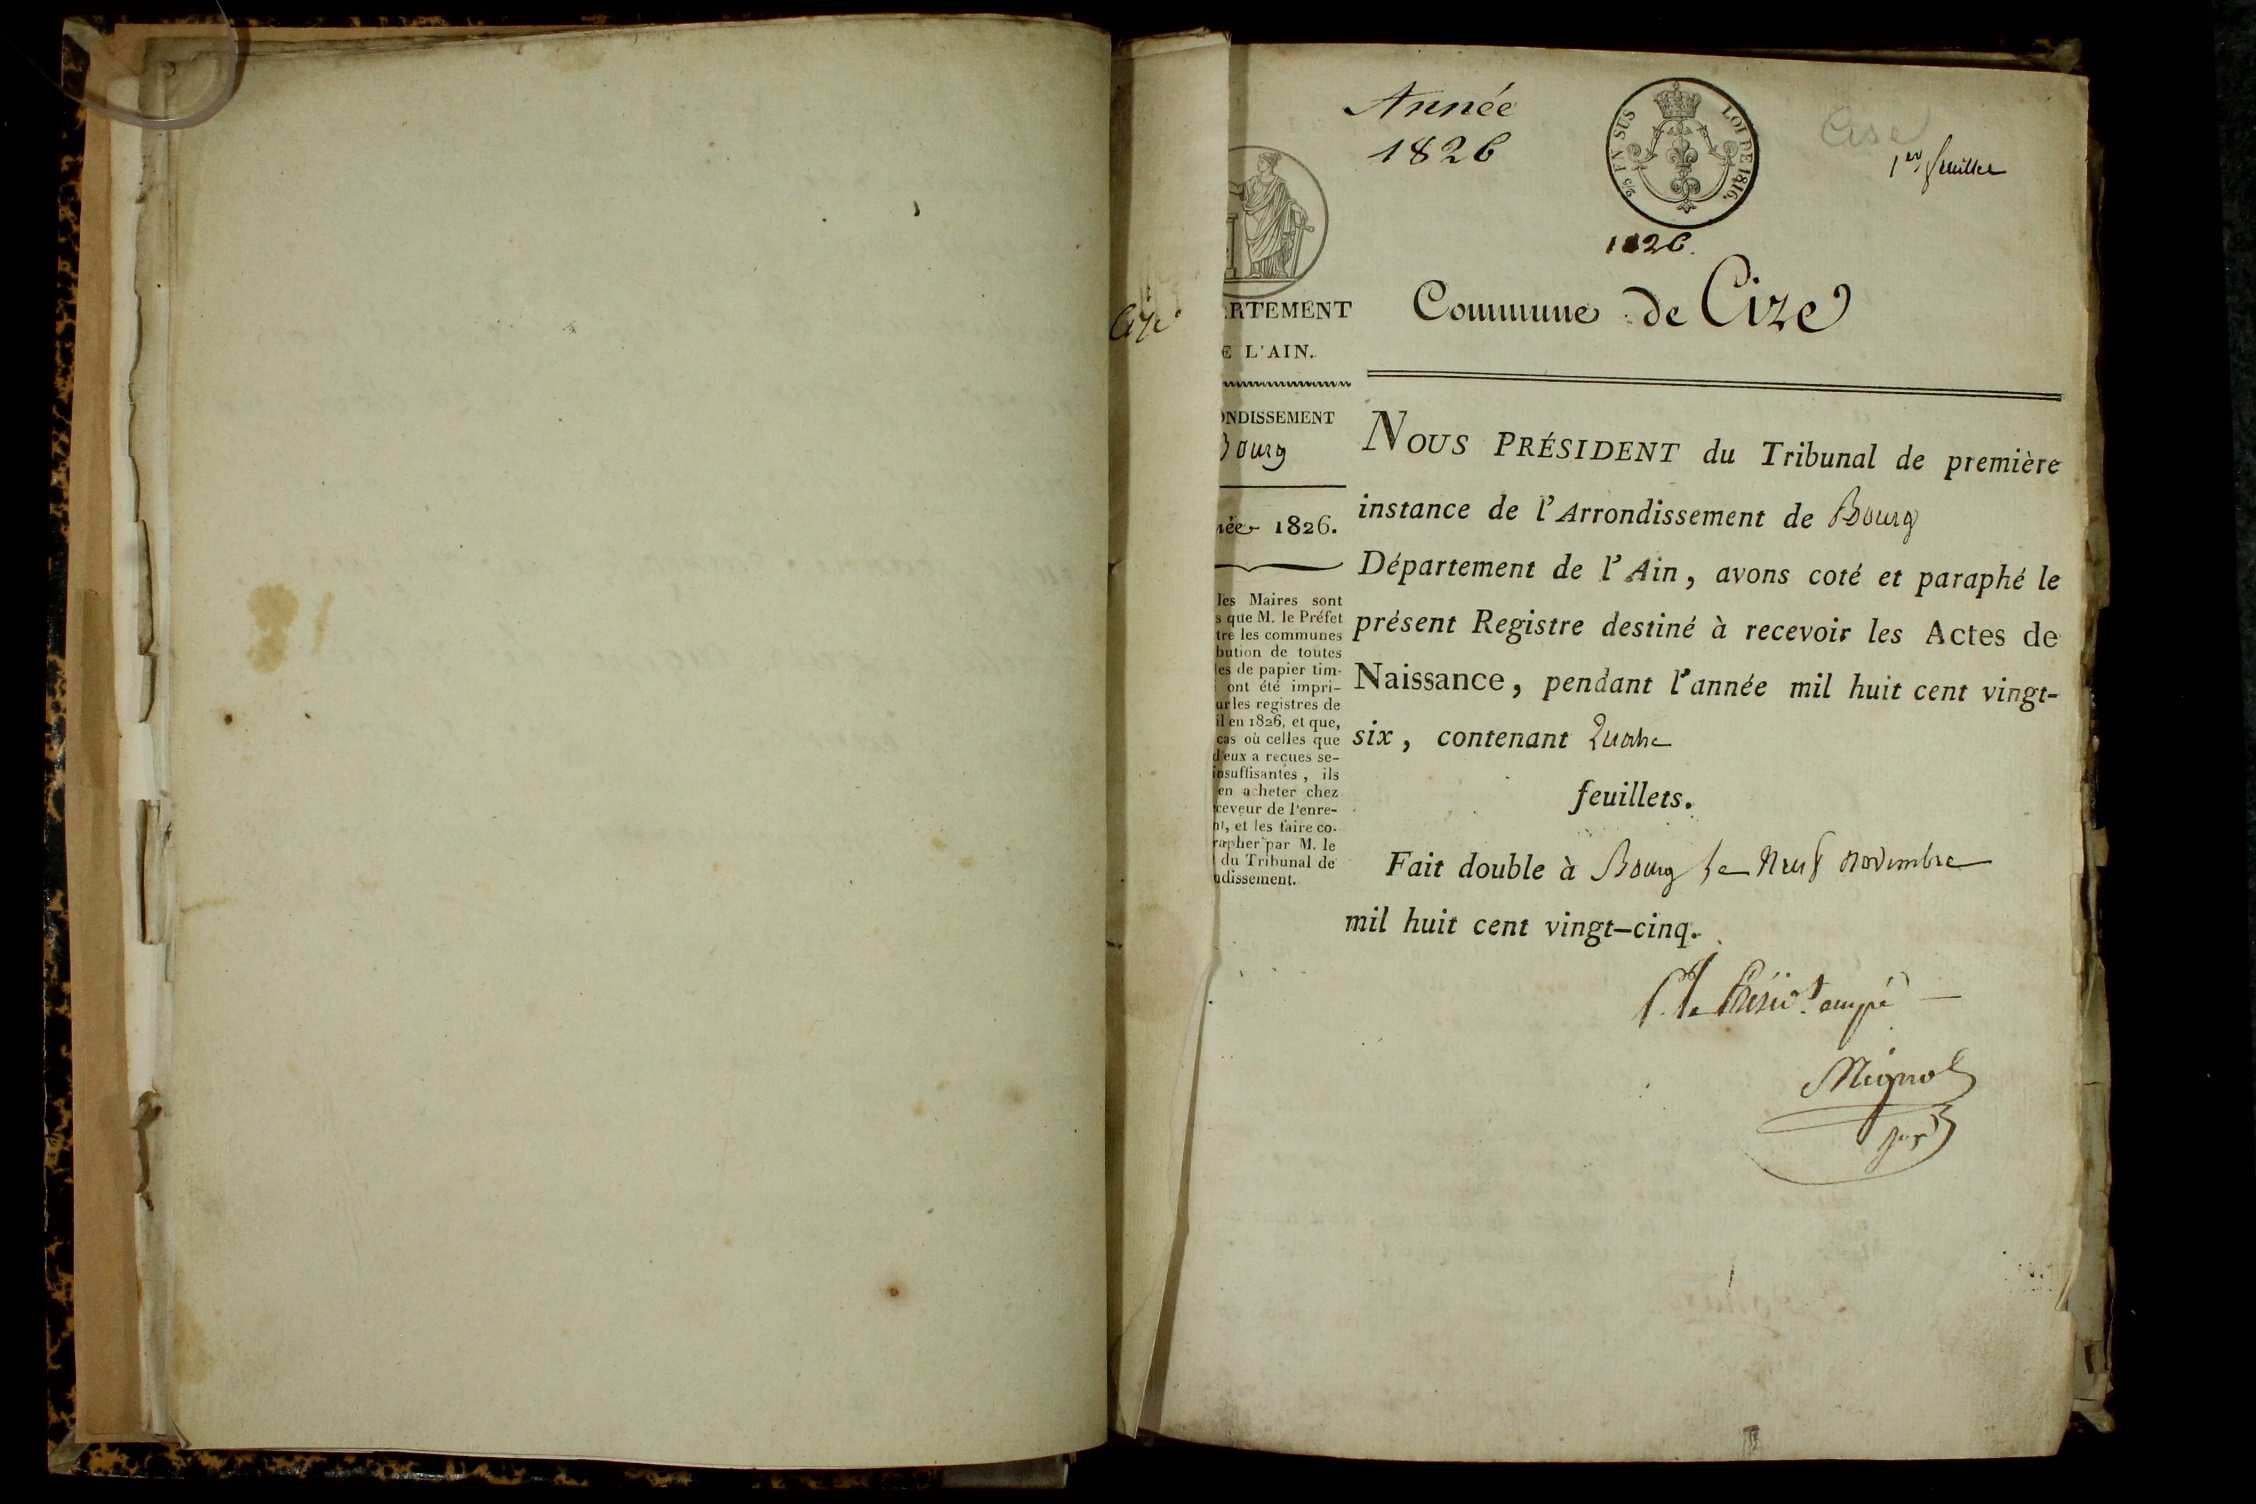 Année
1826
2/5 EN SUS LOI DE 1816.
1826.
Cise
1er feuillet
Cize
Commune de Cize
RTEMENT
E L'AIN.
NDISSEMENT
Bourg
née 1826.
les Maires sont
s que M. le Préfet
tre les communes
bution de toutes
les de papier tim-
ont été impri-
ur les registres de
il en 1826, et que,
cas où celles que
d'eux a reçues se-
insuffisantes, ils
en acheter chez
ceveur de l'enre-
nt, et les faire co-
rapher par M. le
du Tribunal de
ndissement.
NOUS PRÉSIDENT du Tribunal de première
instance de l'Arrondissement de Bourg
Département de l'Ain, avons coté et paraphé le
présent Registre destiné à recevoir les Actes de
Naissance, pendant l'année mil huit cent vingt-
six, contenant Quatre
feuillets.
Fait double à Bourg le Neuf novembre
mil huit cent vingt-cinq.
P. le Présidt. empé